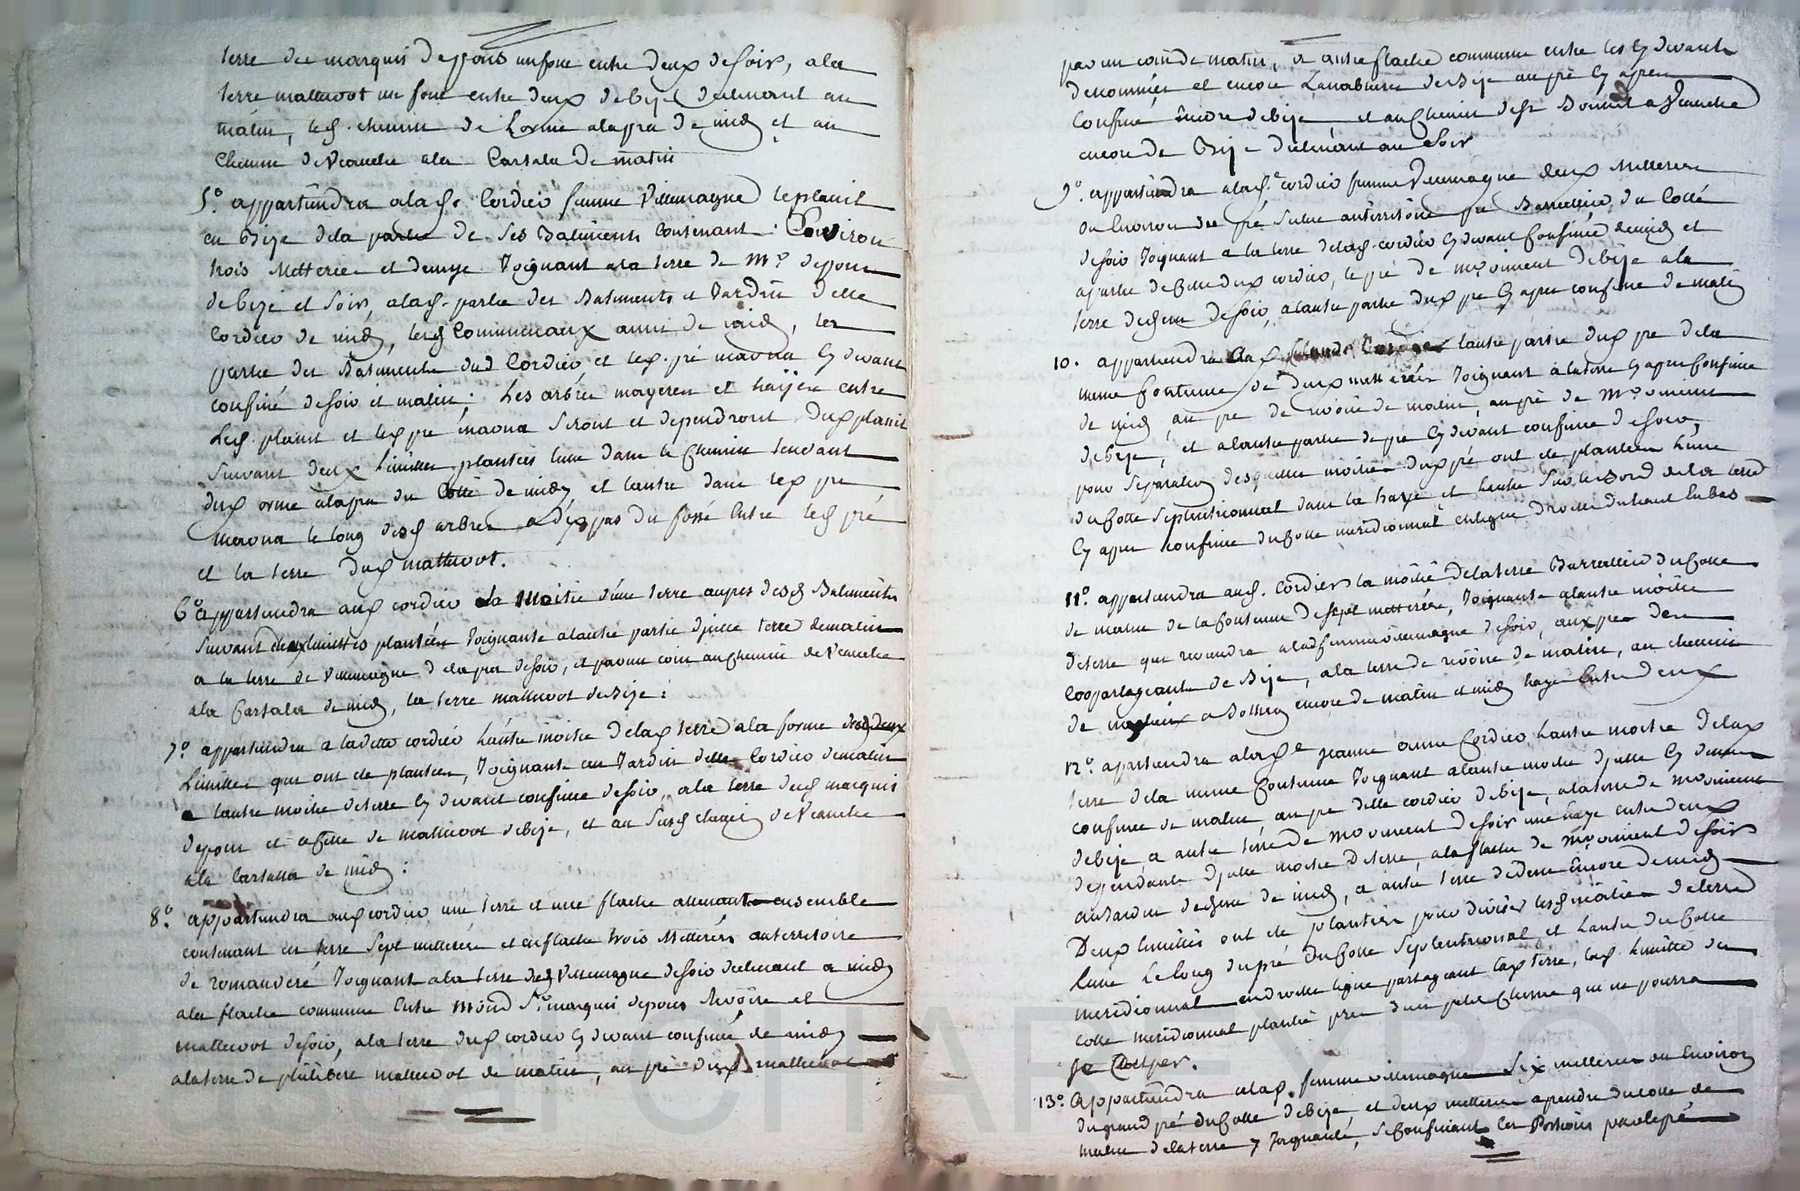 terre du marquis depons un foné entre deux de soir, a la
terre mallurot un foné entre deux de bize declinant au
matin, led. chemin de Lorme a la pra de midy et au
chemin de Veauche a la Cartala de matin
5.° appartiendra a lad. Cordier femme Villemagne le planit
en Bize de la partie de ses Batiments contenant Environ
trois Metterée et demye Joignant a la terre de Mr. depons
de bize et soir, a lad. partie des Batiments et Jardin d'elle
Cordier de midy, lesd. Communaux aussi de midy, les
partie des Batiments dud. Cordier et led. pré mavna cy devant
confiné de soir et matin: Les arbres mayeren et hayére entre
Led. planit et led. pré mavna seront et dependront dud. planit
suivant deux Limittes plantées l'une dans le chemin tendant
dud. orme a la pra du Coté de midy et l'autre dans led. pré
mavna le long desd. arbres a dix pas du fossé entre led. pré
et la terre dud. mallurot.
6.° appartiendra aud. cordier la Moitié d'une terre aupres desd. Batiments
suivant deux limittes plantées Joignante a l'autre partie d'jcelle terre de matin
a la terre de Villemagne de soir, et par un coin au chemin de Veauche
a la Cartala de midy, la terre mallurot de Bize:
7.° appartiendra a ladite cordier L'autre moitié de lad. terre a la forme desd. deux
Limittes qui ont été plantées, Joignante au Jardin d'elle Cordier de matin
a l'autre moitié de terre cy devant confinée de soir, a la terre dud. marquis
depons et a celle de mallurot de bize, et au susd. chemin de Veauche
a la Cartala de midy:
8.° appartiendra aud. cordier une terre et une flache attenant ensemble
contenant en terre sept metterée et en flache trois Metterées au territoire
de romanderé Joignant a la terre desd. Villemagne de soir declinant a midy
a la flache commune Entre Mond. Sr. marquis depons Novoire et
mallurot de soir, a la terre dud. cordier cy devant confinée de midy
a la terre de philibert mallurot de matin, au pré dud. mallurot
par un coin de matin, a autre flache commune entre les cy devant
denommées et encore Lanabuere de Bize au pré cy apres
confiné encore de bize et au Chemin de St. Bonnet a Veauche
encore de Bize declinant au Soir
9.° appartiendra a lad. cordier femme Villemagne deux Metterée
ou Environ du pré scitué au territoire du Coté
de soir Joignant a la terre de lad. cordier cy devant confinée de midy et
a partie de celle dud. cordier, le pré de moniment de bize a la
terre de soir, a l'autre partie dud. pré cy apres confiné de matin
10. appartiendra aud. l'autre partie dud. pré de la
meme Contenue de deux metterées Joignant a la terre cy apres Confinée
de midy, au pré de novoire de matin, au pré de Moniment
de bize, et a l'autre partie de pré cy devant confinée de soir,
pour separation desquelles moitiés dud. pré ont été plantées L'une
du Cotté Septentrionnal dans la haye et l'autre sur le Bord de la terre
cy apres confinée du Cotté meridionnal en ligne droite du haut En bas
11.° appartiendra aud. Cordier la moitié de la terre Barrallier du Cotté
de matin de la Contenue de sept metterées, Joignante a l'autre moitié
de terre qui reviendra a lad. femme Villemagne de soir, aux pre des
Coopartageants de Bize, a la terre de novoire de matin, au chemin
de encore de matin et midy haye Entre deux
12.° apartiendra a lad. Jeanne anne Cordier L'autre moitié de lad.
terre de la meme Contenue Joignant a l'autre moitié d'jcelle cy devant
confinée de matin, au pré d'elle cordier de bize, a la terre de Moniment
de bize a autre terre de Moniment de soir une haye entre deux
dependante d'jcelle moitié de terre, a la flache de Moniment de soir
au Jardin de midy, a autre terre encore de midy
Deux limittes ont été plantées pour diviser lesd. moitiés de terre
l'une Le long du pré du Cotté Septentrional et L'autre du Cotté
meridionnal en droite ligne partageant lad. terre, lad. Limitte du
cotté meridionnal plantée pres d'un petit Chesne qui ne pourra
Se Couper.
13.° Appartiendra a lad. femme Villemagne Six metterées ou Environ
du grand pré du Cotté de Bize, et deux metterées a prendre du cotté de
matin de la terre y Joignante, se Confinant les Portions par le pré